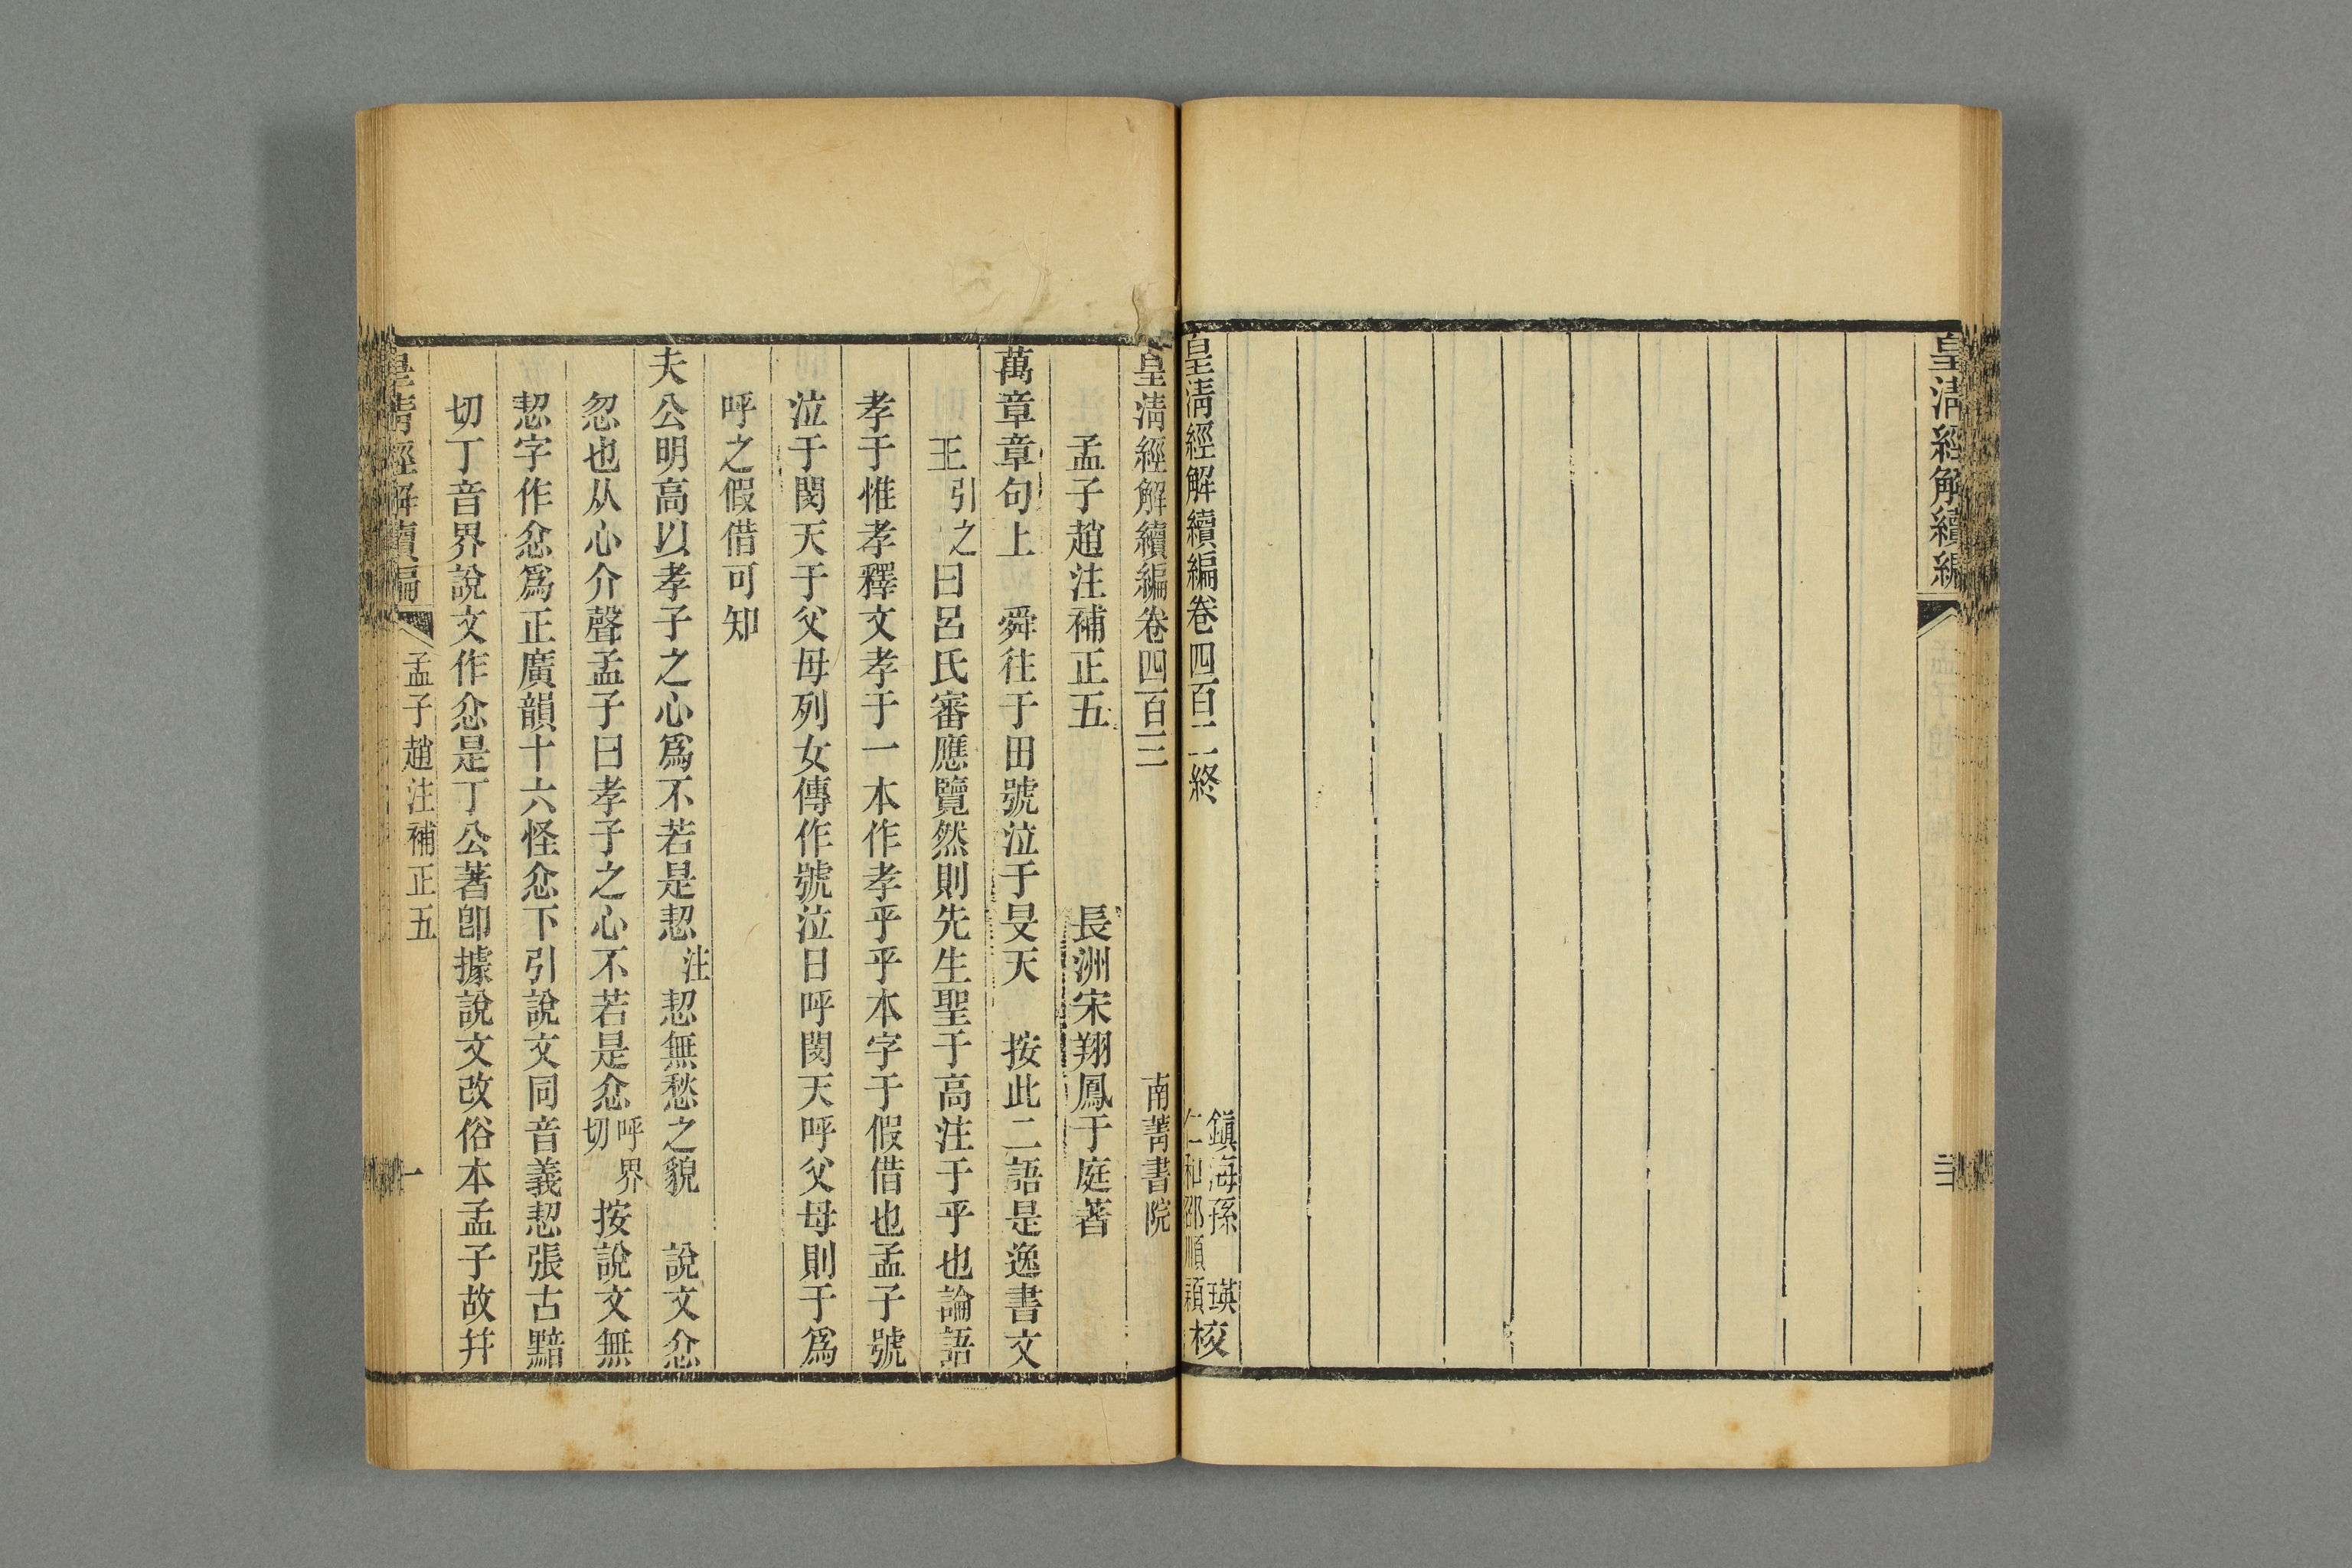 皇清經解續編
皇清經解續編卷四百二終
鎮海孫 瑛
仁和邵順穎校
皇清經解續編卷四百三 南菁書院
孟子趙注補正五 長洲宋翔鳳于庭著
萬章章句上 舜往于田號泣于旻天 按此二語是逸書文
王引之曰呂氏審應覽然則先生聖于高注于乎也論語
孝于惟孝釋文孝于一本作孝乎乎本字于假借也孟子號
泣于閔天于父母列女傳作號泣日呼閔天呼父母則于爲
呼之假借可知
夫公明高以孝子之心爲不若是恝注恝無愁之貌 說文忿
忽也从心介聲孟子曰孝子之心不若是忿呼界切按說文無
恝字作忿爲正廣韻十六怪忿下引說文同音義恝張古黠
切丁音界說文作忿是丁公著卽據說文改俗本孟子故幷
皇清經解續編 孟子趙注補正五 一